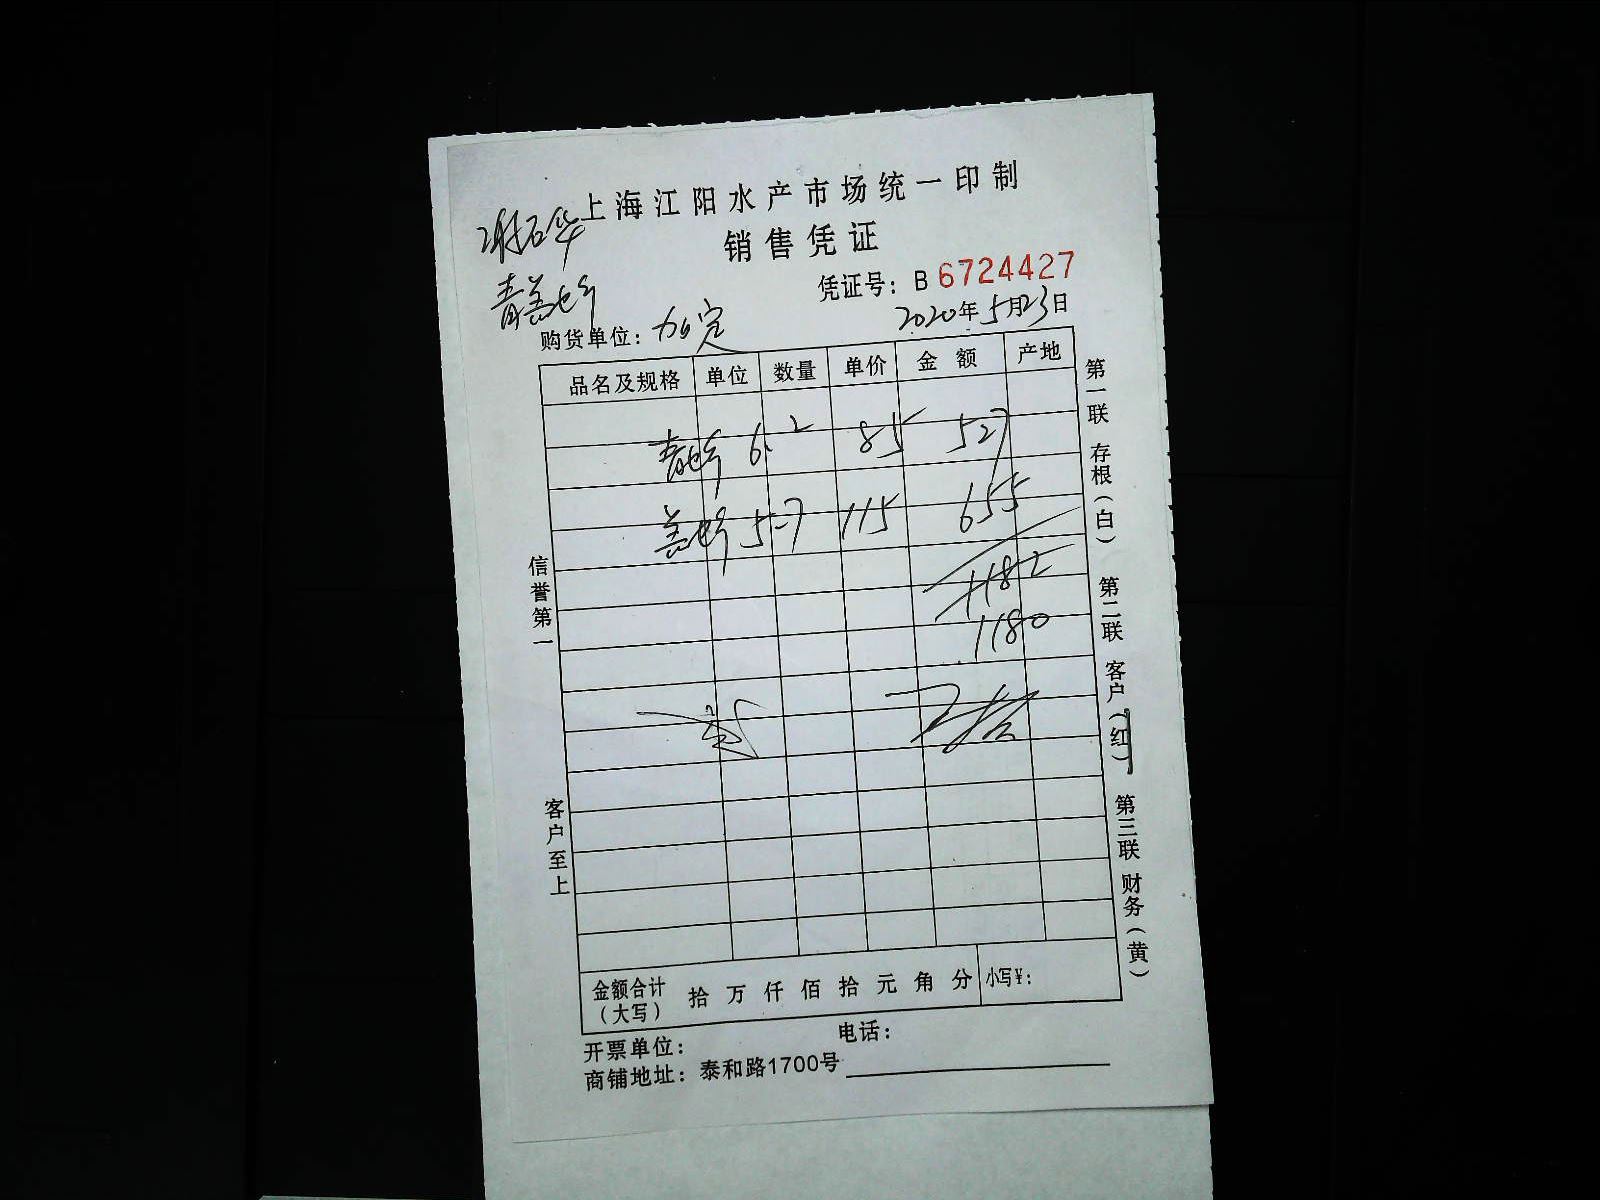 上海江阳水产市场统一印制
销售凭证
凭证号：B 6724427
2020年5月23日
购货单位：加定
品名及规格 单位 数量 单价 金额 产地
6.2 85 527
5.7 115 655
1182
1180
金额合计（大写） 拾 万 仟 佰 拾 元 角 分 小写¥：
开票单位： 电话：
商铺地址：泰和路1700号
信誉第一
客户至上
第一联 存根（白） 第二联 客户（红） 第三联 财务（黄）